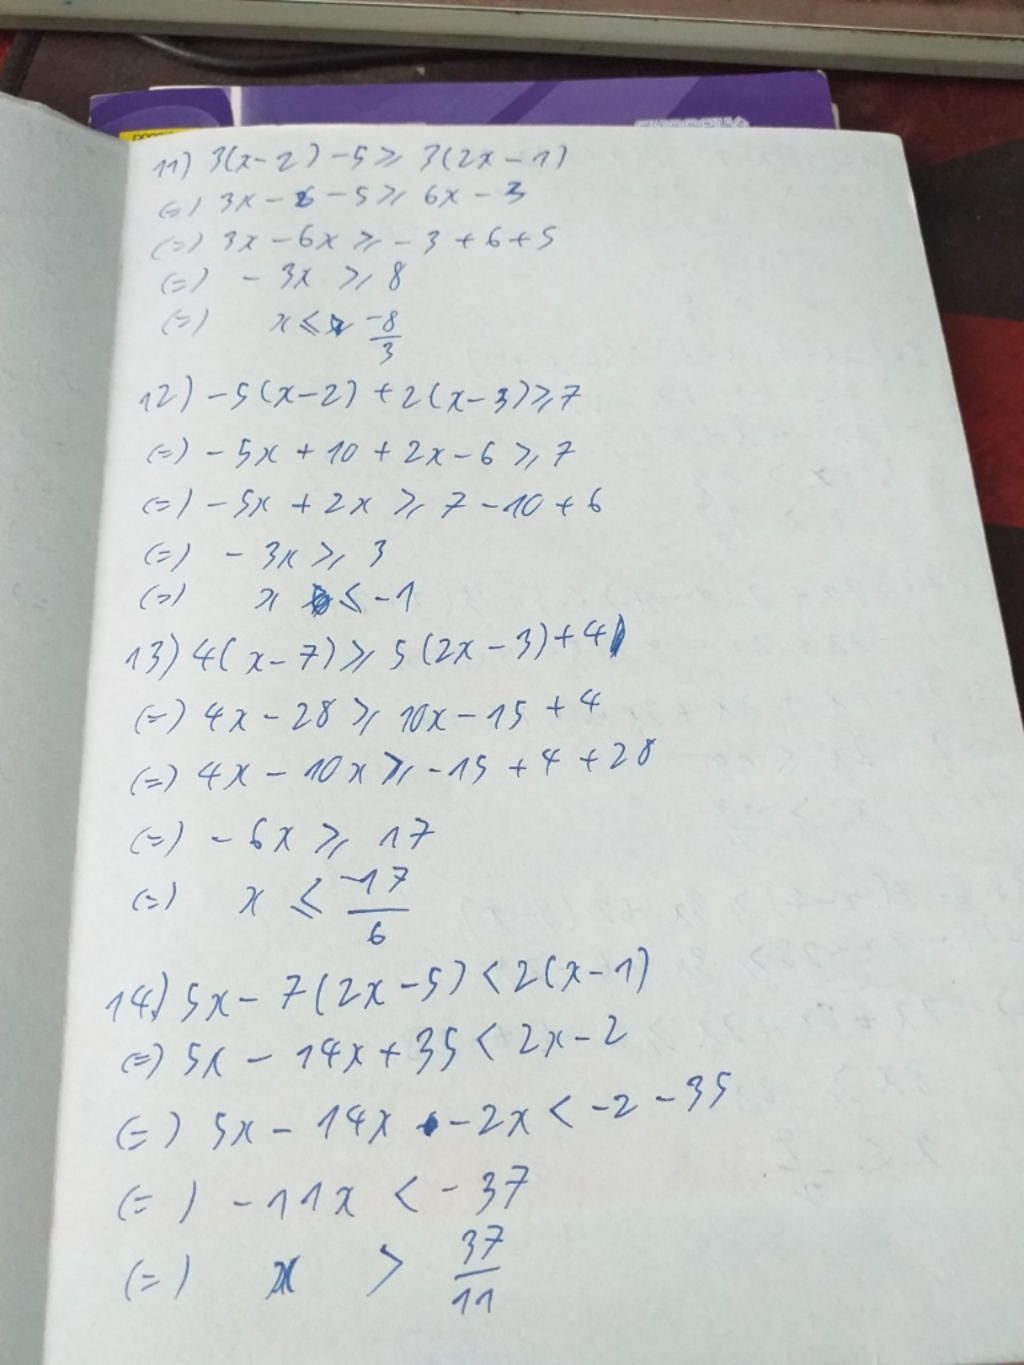 11) 3(x-2)-5⩾3(2x-1)
(=) 3x-6-5⩾6x-3
(=) 3x-6x⩾-3+6+5
(=) -3x⩾8
(=) x⩽-8/3
12) -5(x-2)+2(x-3)⩾7
(=) -5x+10+2x-6⩾7
(=) -5x+2x⩾7-10+6
(=) -3x⩾3
(=) x⩽-1
13) 4(x-7)⩾5(2x-3)+4
(=) 4x-28⩾10x-15+4
(=) 4x-10x⩾-15+4+28
(=) -6x⩾17
(=) x⩽-17/6
14) 5x-7(2x-5)<2(x-1)
(=) 5x-14x+35<2x-2
(=) 5x-14x-2x<-2-35
(=) -11x<-37
(=) x>37/11